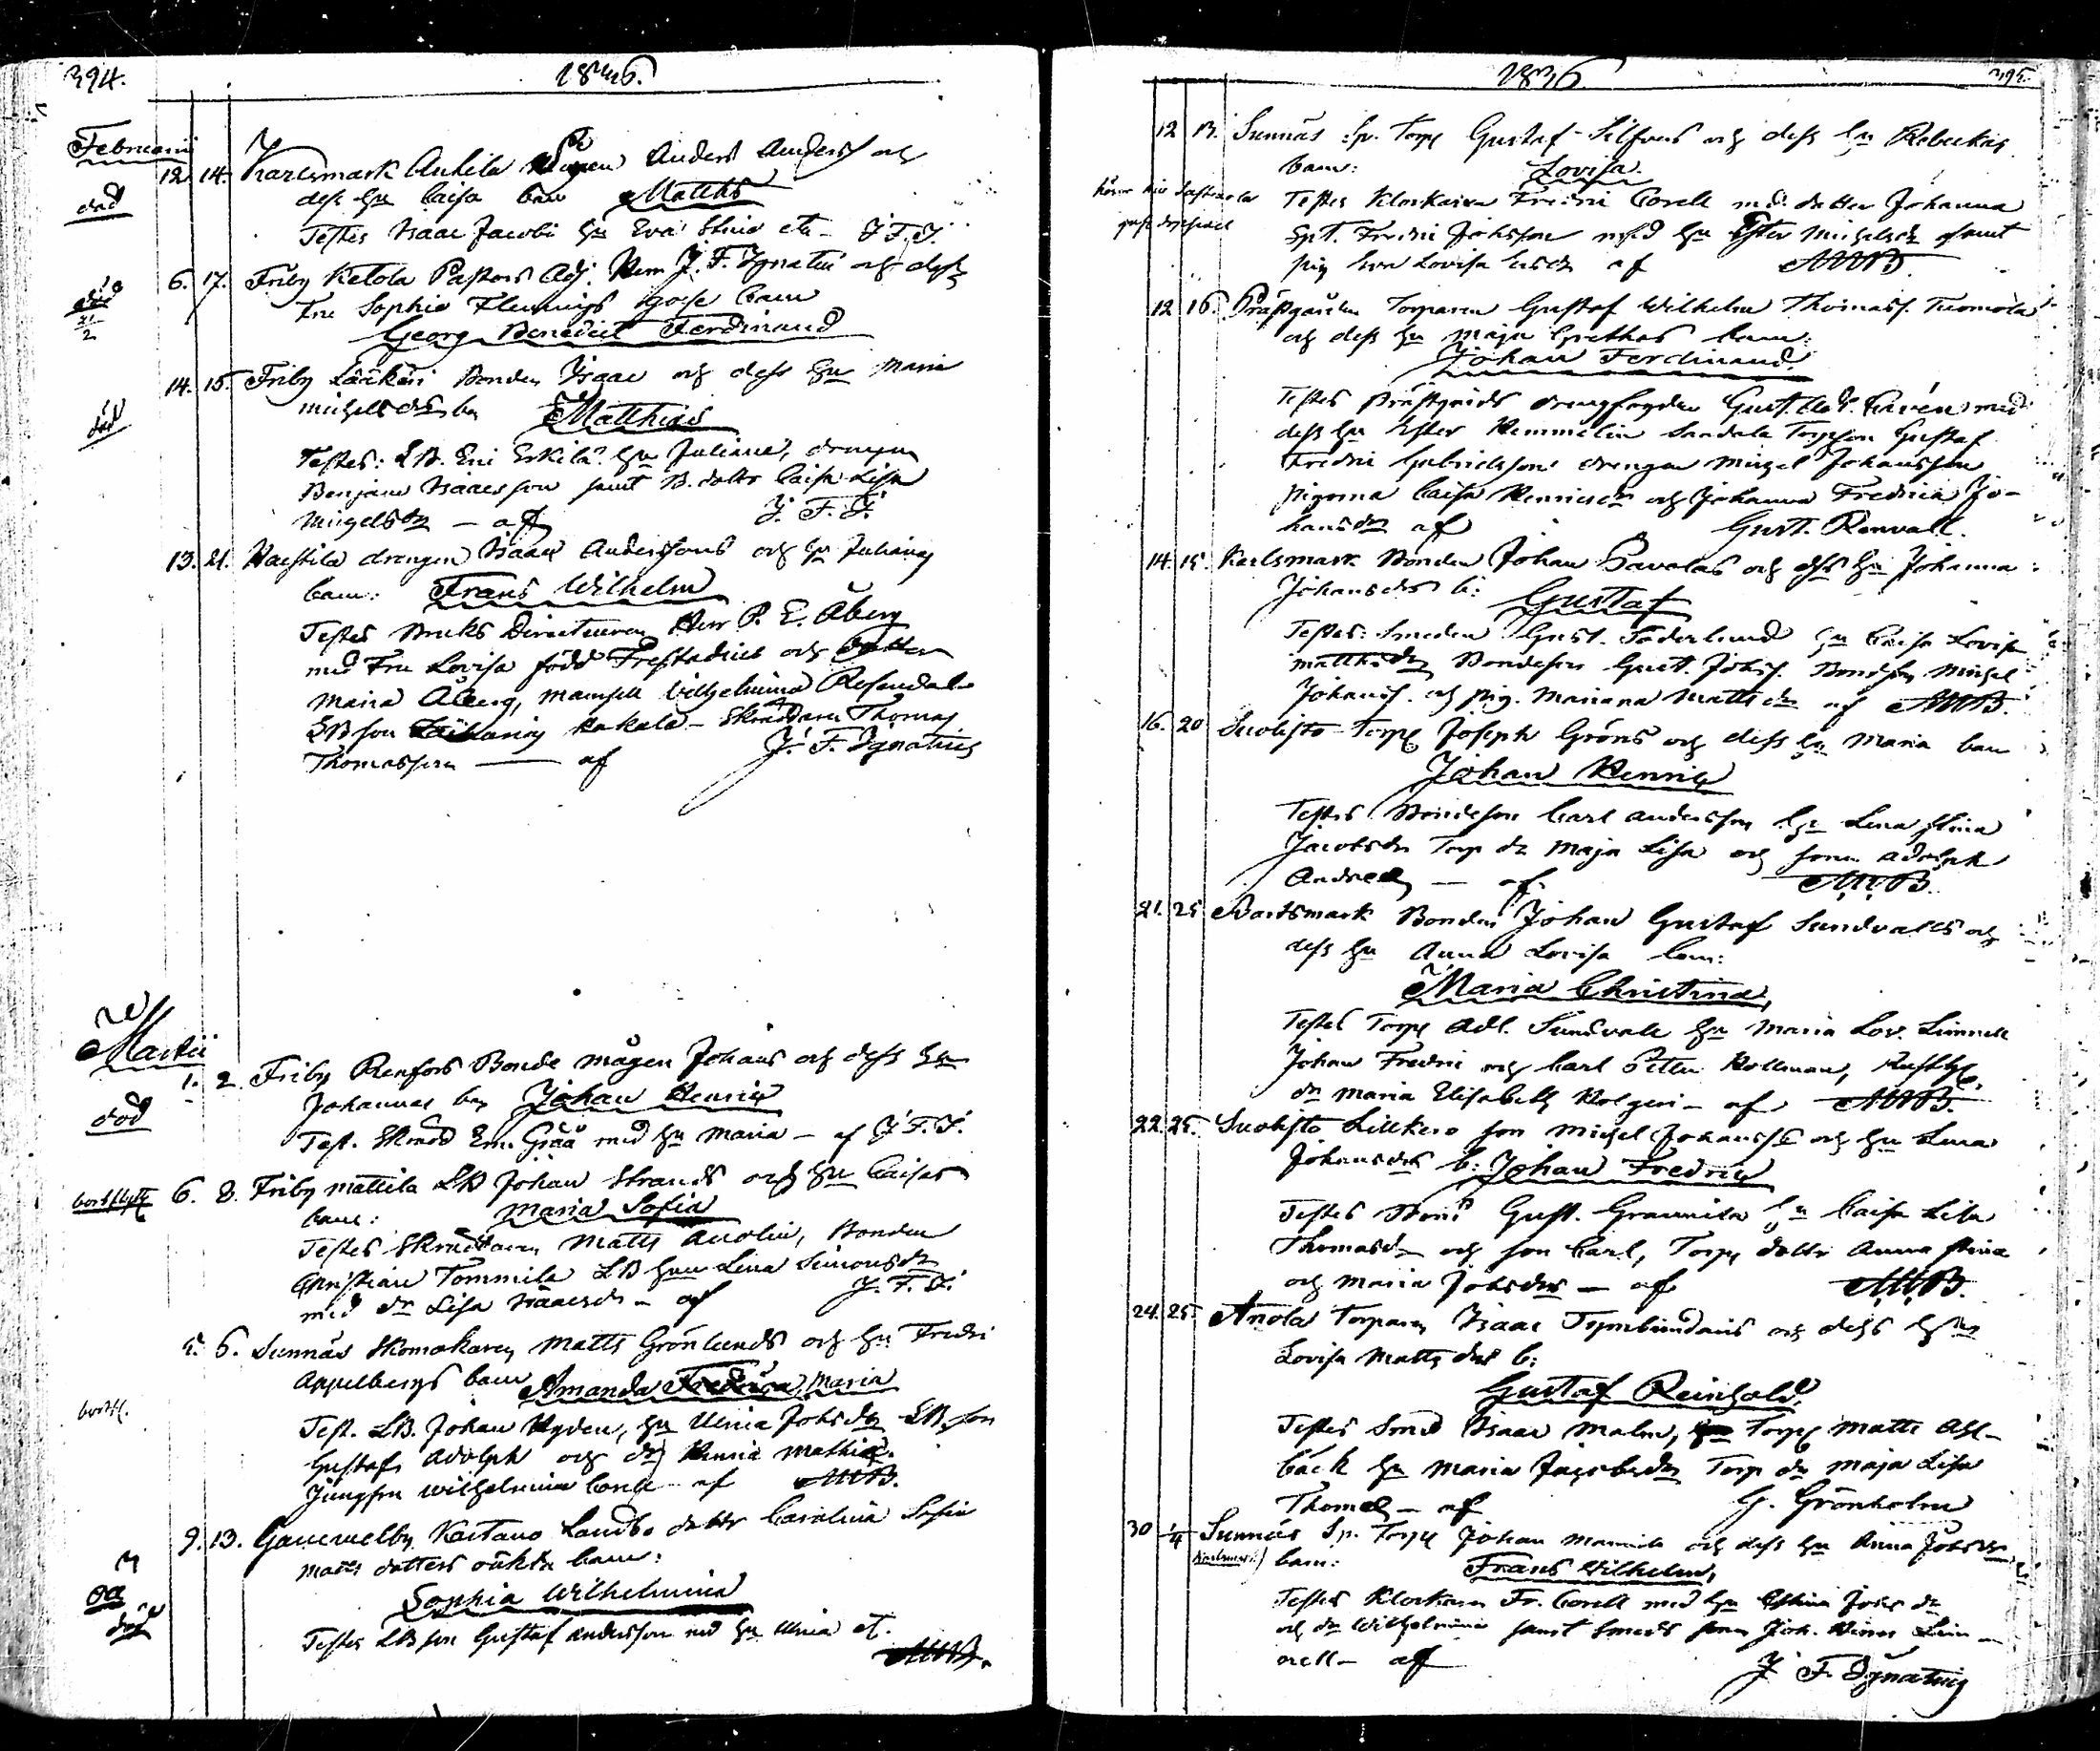 394.
1836.
Februarii
12. 14. Karlsmark Ankila Anders Anders och
död
dess hu Caisa barn Matths
Testes Isaac Jacobi hu Eva Stina etc - J. F. I.
6. 17. Friby Ketola Pastors Adj. Herr J. F. Ignatii och dess
död
Fru Sophie Flemings barn
Georg Benedict Ferdinand
14. 15. Friby Lääkäri Bonden Isaac och dess hu Maria
död
Michelsdrs bn Matthias
Testes: LB. Eric Erkilä hu Juliana, drengen
Benjamin Isaacsson samt B. dottr Caisa Lisa
Michelsdr - af J. F. I.
13. 21. drengen Isaac Anderssons och hu Julianas
barn: Frans Wilhelm
Testes Bruks Directeuren Herr P. E. Åberg
med Fru Lovisa född Frestadius och dotter
Maria Åberg, Mamsell Wilhelmina Rosendal
LBson Kakola - Skräddaren Thomas
Thomasson - af J. F. Ignatius
Martii
1. 2. Friby Renfors Bonde mågen Johans och dess hu
Johannas bn Johan Henric
död
Test. Skrädd Em. Gråå med hu Maria - af J. F. I.
6. 8. Friby Mattila LB Johan Strands och hu Caisas
bortflytt
barn: Maria Sofia
Testes Skräddaren Matts Anolin, Bonden
Christian Tommila LB hun Lena Simonsdr
med dr Lisa Isaacsdr - af J. F. I.
5. 6. Sunnäs Skomakaren Matts Grönlunds och hu Fredri
Appelbergs barn Amanda Fredrica Maria
bortfl.
Test. LB. Johan Nyden, hu Ulrica Johsdr LB. son
Gustaf Adolph och dr
Jungfru Wilhelmina Corell - af MWB.
9. 13. Gammelby Landbo dottr Carolina Sofia
Matts dotters oäkta barn:
Sophia Wilhelmina
död
Testes LB son Gustaf Andersson med hu Ulrica et.
MWB.
1836
395.
12 13. Sunnäs Sp. Torp Gustaf Silfvers och dess hu Rebeckas
barn: Lovisa
Testes Klockaren Fredric Corell med dotter Johanna
Spt. Fredric Johsson med hu Ester Michelsdr samt
pig Eva Lovisa af MWB.
12 16. Prästgården Torparen Gustaf Wilhelm Thomass. Tuomola
och dess hu Maja Grethas barn:
Johan Ferdinand
Testes Prästgårds drengfogden Gust. med
dess hu Ester Hemmelin Sandala Torpson Gustaf
Fredric Gabrielsson drengen Michel Johansson
pigorna Caisa Henricsdr och Johanna Fredrica Jo-
hansdr af Gust. Renvall.
14. 15. Karlsmark Bonden Johan Savolas och dess hu Johanna
Johansdrs b: Gustaf
Testes: Smeden Gust. Söderlund hu Caisa Lovisa
Matthsdr Bondeson Gust. Johss. Bondson Michel
Johanss. och pig. Mariana Mattsdr af MWB.
16. 20 Suolisto Torp Joseph Gröns och dess hu Maria barn
Johan Henric
Testes Bondeson Carl Andersson hu Lena Stina
Jacobsdr Torp dr Maja Lisa och sonen Adolph
Andreæ - af MWB.
21. 25 Karlsmark Bonden Johan Gustaf Sundvalls och
dess hu Anna Lovisa barn:
Maria Christina
Testes Torp Adl. Sundvall hu Maria Lov. Limnell
Johan Fredric och Carl Petter Rollman,
dr Maria Elisabeth Holgeri - af MWB.
22. 25. Suolisto Lillkero son Michel Johanss och hu Lena
Johansdrs b: Johan Fredric
Testes Bond Gust. Grannila hu Caisa Lisa
Thomasdr och son Carl, Torp dottr Anna Stina
och Maria Johsdrs - af MWB.
24. 25. Anola Torparen Isaac Tymbindaris och dess hus
Lovisa Matts drs b:
Gustaf Reinhold
Testes Smed Isaac Malm, Torp Matts Ahl-
bäck hu Maria Jacobsdr Torp dr Maja Lisa
Thomæ - af G. Grönholm
30 1/4 Sunnäs Sp. Torp Johan och dess hu Anna Johsdrs
barn: Frans Wilhelm,
Testes Klockaren Fr. Corell med hu Stina Johs dr
och dr Wilhelmina samt Smeds son Joh. Lim-
nell - af J. F. Ignatius